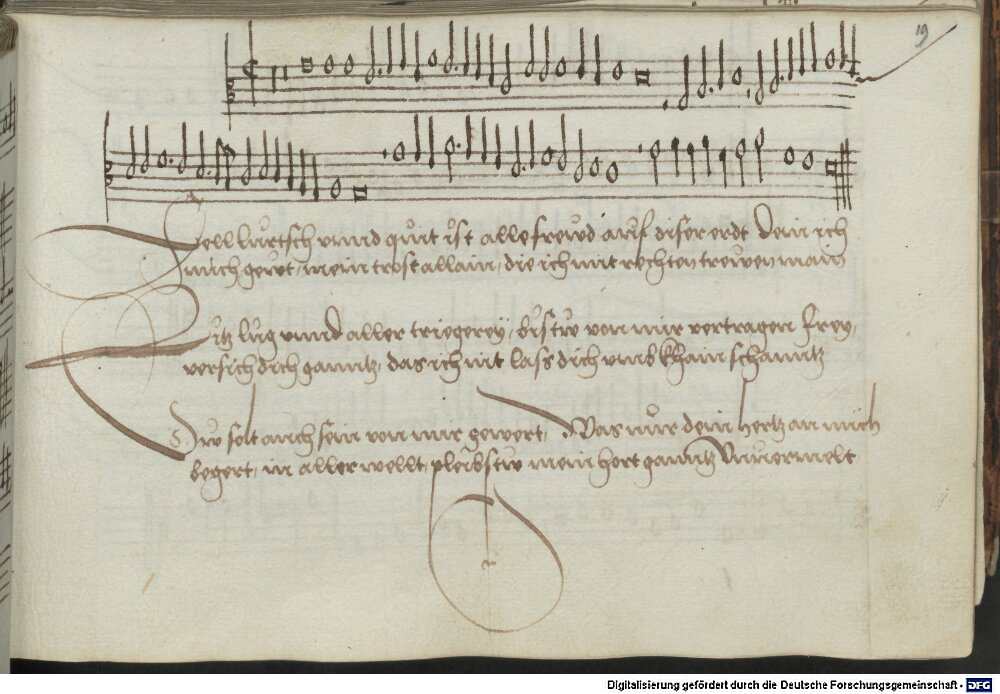 19
Sell lurtsch vnnd quit ist alle frewd auf diser erdt Dem ich
mich gert, mein trost allain, die ich mit rechten trewen main
Sitz lug vnnd aller triegereÿ, bistw von mir vertragen frey,
versich dich ganntz, das ich nit lass dich vmb khain schanntz
Dw solt auch sein von mir gewert, Was nur dein hertz an mich
begert, in aller wellt, pleibstw mein hort ganntz Vnuermelt
Digitalisierung gefördert durch die Deutsche Forschungsgemeinschaft - DFG